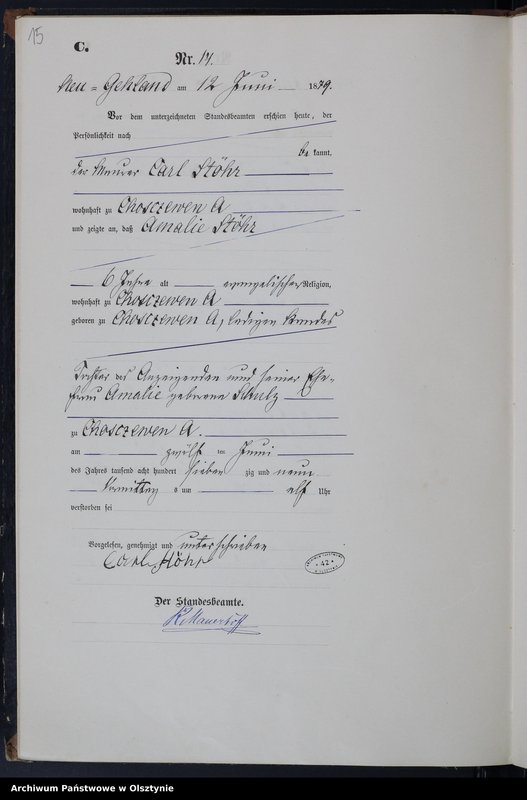 15
C.
Nr. 17.
Neu-Gehland am 12 Juni 1879.
Vor dem unterzeichneten Standesbeamten erschien heute, der
Persönlichkeit nach
be kannt,
der Maurer Carl Stöhr
wohnhaft zu Chosczewen A
und zeigte an, daß Amalie Stöhr
6 Jahre alt evangelischer Religion,
wohnhaft zu Chosczewen A
geboren zu Chosczewen A, ledigen Standes
Tochter des Anzeigenden und seiner Ehe-
frau Amalie geborene Schulz
zu Chosczewen A.
am zwölf ten Juni
des Jahres tausend acht hundert sieben zig und neun
Vormittag s um elf Uhr
verstorben sei
Vorgelesen, genehmigt und unterschrieben
Carl Stöhr
42
Der Standesbeamte.
Archiwum Państwowe w Olsztynie